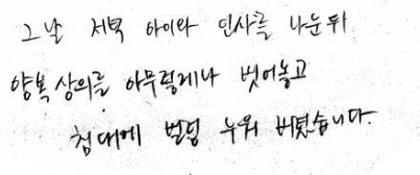 그날 저녁 아이와 인사를 나눈뒤
양복 상의를 아무렇게나 벗어놓고
침대에 벌덩 누워 버렸습니다.